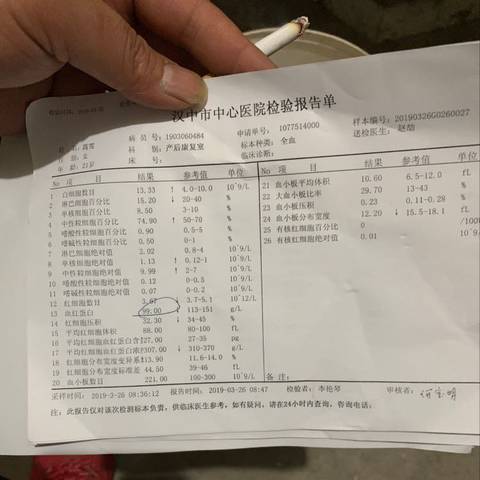 汉中市中心医院检验报告单
病 员 号: 1903060484 申请单号: 1077514000 样本编号: 20190326G0260027
女 科 别: 产后康复室 标本种类: 全血 送检医生:
年 龄: 21岁 床 号: 临床诊断:
No 项 目 结果 参考值 单位 No 项 目 结果 参考值 单位
1 白细胞数目 13.33 ↑ 4.0-10.0 10^9/L 21 血小板平均体积 10.60 6.5-12.0 fL
2 淋巴细胞百分比 15.20 ↓ 20-40 % 22 大血小板比率 29.70 13-43 %
3 单核细胞百分比 8.50 3-10 % 23 血小板压积 0.23 0.11-0.28 %
4 中性粒细胞百分比 74.90 ↑ 50-70 % 24 血小板分布宽度 12.20 ↓ 15.5-18.1 fL
5 嗜酸性粒细胞百分比 0.90 0.5-5 % 25 有核红细胞百分比 0 /100
6 嗜碱性粒细胞百分比 0.50 0-1 % 26 有核红细胞绝对值 0.01 10^9
7 淋巴细胞绝对值 2.02 0.8-4 10^9/L
8 单核细胞绝对值 1.13 ↑ 0.12-1 10^9/L
9 中性粒细胞绝对值 9.99 ↑ 2-7 10^9/L
10 嗜酸性粒细胞绝对值 0.12 0-0.5 10^9/L
11 嗜碱性粒细胞绝对值 0.07 0-0.2 10^9/L
12 红细胞数目 3.67 ↓ 3.7-5.1 10^12/L
13 血红蛋白 99.00 ↓ 113-151 g/L
14 红细胞压积 32.30 ↓ 34-45 %
15 平均红细胞体积 88.00 80-100 fL
16 平均红细胞血红蛋白含 27.00 27-35 pg
17 平均红细胞血红蛋白浓 307.00 ↓ 310-370 g/L
18 红细胞分布宽度变异系 13.90 11.6-14.0 %
19 红细胞分布宽度标准差 44.50 39-46 fL
20 血小板数目 221.00 100-300 10^9/L 备 注:
采样时间: 2019-3-26 08:36:12 报告时间: 2019-03-26 08:47 检验者: 李艳琴 审核者:
注: 此报告仅对该次检测标本负责, 供临床医生参考, 如有疑问, 请在24小时内查询, 咨询电话: